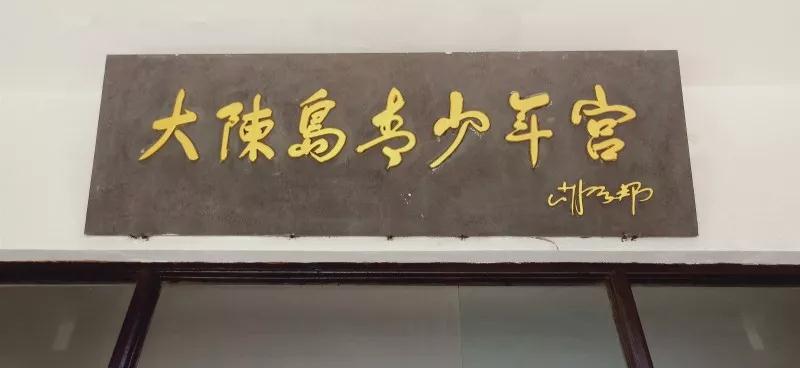 大陳島青少年宮
胡耀邦